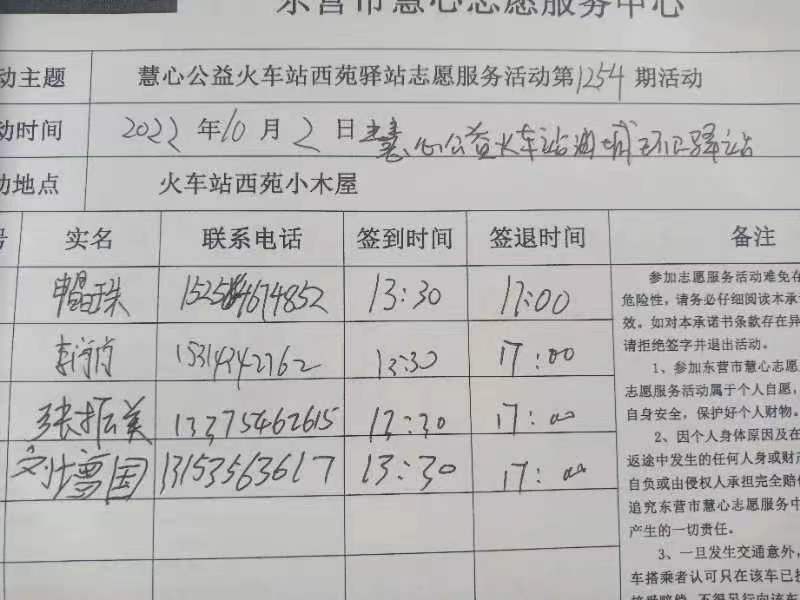 东营市慧心志愿服务中心
动主题 慧心公益火车站西苑驿站志愿服务活动第1254期活动
动时间 2022年10月2日 慧心公益火车站油城环卫驿站
动地点 火车站西苑小木屋
号 实名 联系电话 签到时间 签退时间 备注
13:30 17:00
15314342762 13:30 17:00
张振美 13375462615 13:30 17:00
刘增国 13153563617 13:30 17:00
参加志愿服务活动难免存
危险性，请务必仔细阅读本承
效。如对本承诺书条款存在异
请拒绝签字并退出活动。
1、参加东营市慧心志愿
志愿服务活动属于个人自愿，
自身安全，保护好个人财物。
2、因个人身体原因及在
返途中发生的任何人身或财产
自负或由侵权人承担完全赔偿
追究东营市慧心志愿服务中
产生的一切责任。
3、一旦发生交通意外，
车搭乘者认可只在该车已投